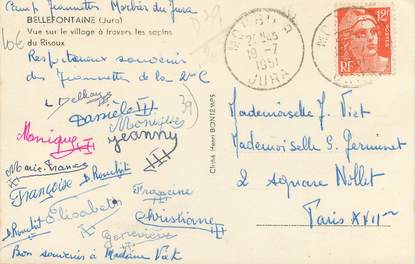 Camp Jeannettes Morbier du Jura
BELLEFONTAINE (Jura)
Vue sur le village à travers les sapins
du Risoux
10€
Respectueux souvenir
des Jeannettes de la 2e C
L Delhaye
Danièle
Monique
Monique
Jeanny
Marie-France
Françoise
D. Rouchit
Francine
Elisabeth
Christiane
D. Rouchit
Geneviève
Bon souvenir à Madame Viet
Cliché Henri BONTEMPS
MORBIER
JURA
19-7
1951
12F
RF
Mademoiselle J. Viet
Mademoiselle G. Perninet
2 square Nollet
Paris XVII